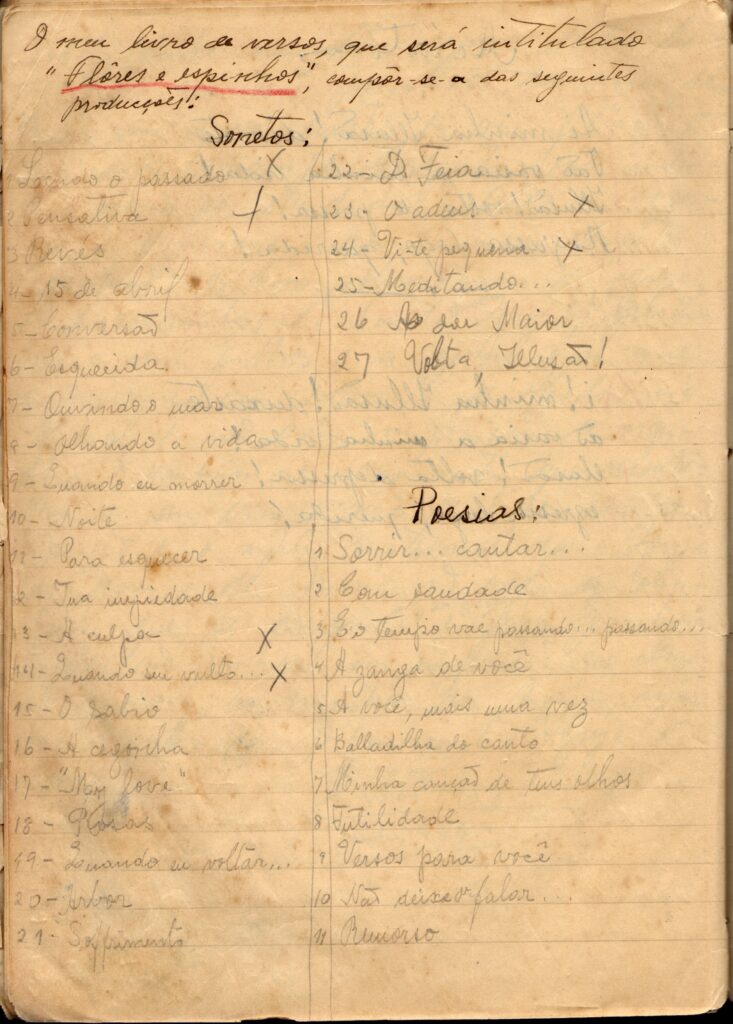 O meu livro de versos, que será intitulado
"Flôres e espinhos", compôr-se-a das seguintes
producções:
Sonetos:
1 Lendo o passado X
2 Pensativa X
3 Revés
4- 15 de abril
5- Conversão
6- Esquecida
7- Ouvindo o mar
8- Olhando a vida
9- Quando eu morrer
10- Noite
11- Para esquecer
12- Tua impiedade
13- A culpa X
14- Quando seu vulto... X
15- O sabio
16- A cegonha
17- "My love"
18- Rosas
19- Quando eu voltar...
20- Arbor
21- Soffrimento
22- D. Feia
23- O adeus X
24- Vi-te pequena X
25- Meditando...
26 A dor Maior
27 Volta, Illusão!
Poesias:
1 Sorrir... cantar...
2 Com saudade
3 E o tempo vae passando... passando...
4 A zanga de você
5 A você, mais uma vez
6 Balladilha do canto
7 Minha canção de teus olhos
8 Futilidade
9 Versos para você
10 Não deixe falar...
11 Remorso